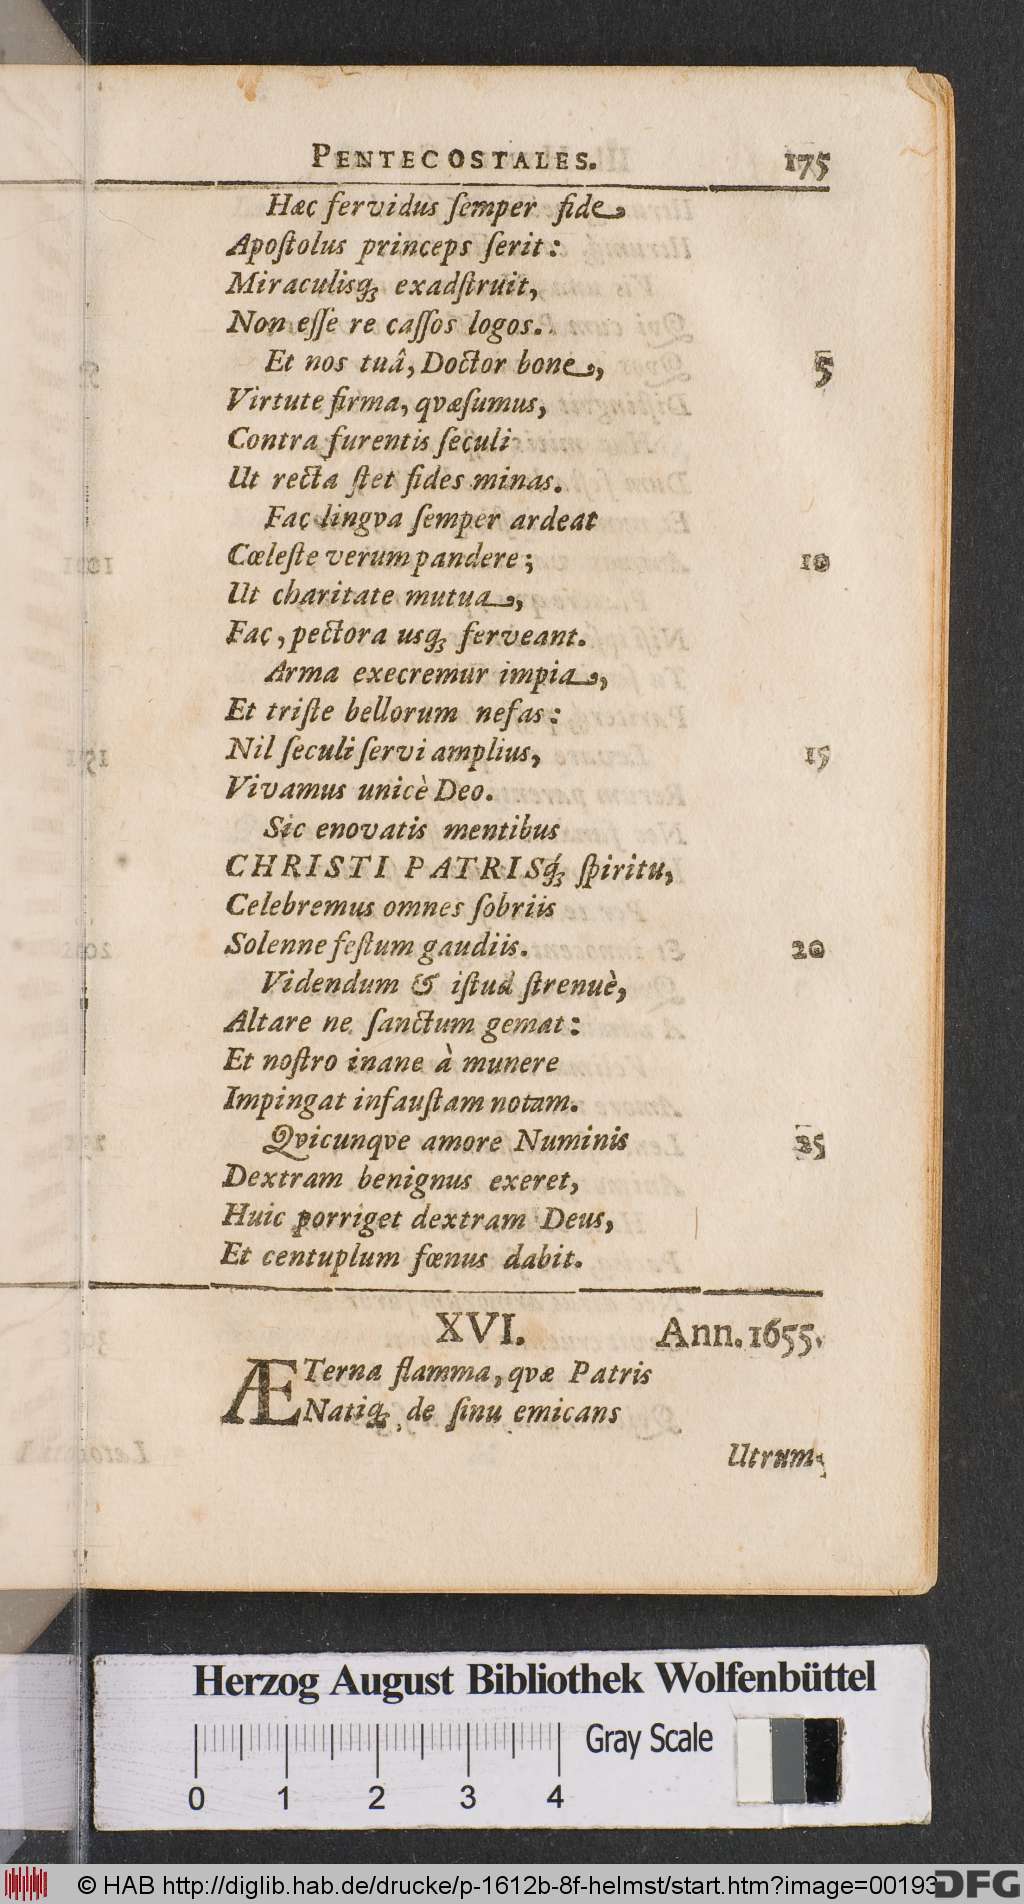 PENTECOSTALES. 175
Hæc fervidus ſemper fide,
Apoſtolus princeps ſerit:
Miraculisq́; exadſtruit,
Non eſſe re caſſos logos.
Et nos tuâ, Doctor bone, 5
Virtute firma, qvæſumus,
Contra furentis ſeculi
Ut recta ſtet fides minas.
Fac lingva ſemper ardeat
Cœleſte verum pandere; 10
Ut charitate mutua,
Fac, pectora usq́; ferveant.
Arma execremur impia,
Et triſte bellorum nefas:
Nil ſeculi ſervi amplius, 15
Vivamus unicè Deo.
Sic enovatis mentibus
CHRISTI PATRISq́; ſpiritu,
Celebremus omnes ſobriis
Solenne feſtum gaudiis. 20
Videndum & iſtud ſtrenuè,
Altare ne ſanctum gemat:
Et noſtro inane à munere
Impingat infauſtam notam.
Qvicunqve amore Numinis 25
Dextram benignus exeret,
Huic porriget dextram Deus,
Et centuplum fœnus dabit.
XVI. Ann. 1655.
ÆTerna flamma, qvæ Patris
Natiq́; de ſinu emicans
Utrum-
Herzog August Bibliothek Wolfenbüttel
Gray Scale
0 1 2 3 4
© HAB http://diglib.hab.de/drucke/p-1612b-8f-helmst/start.htm?image=00193
DFG